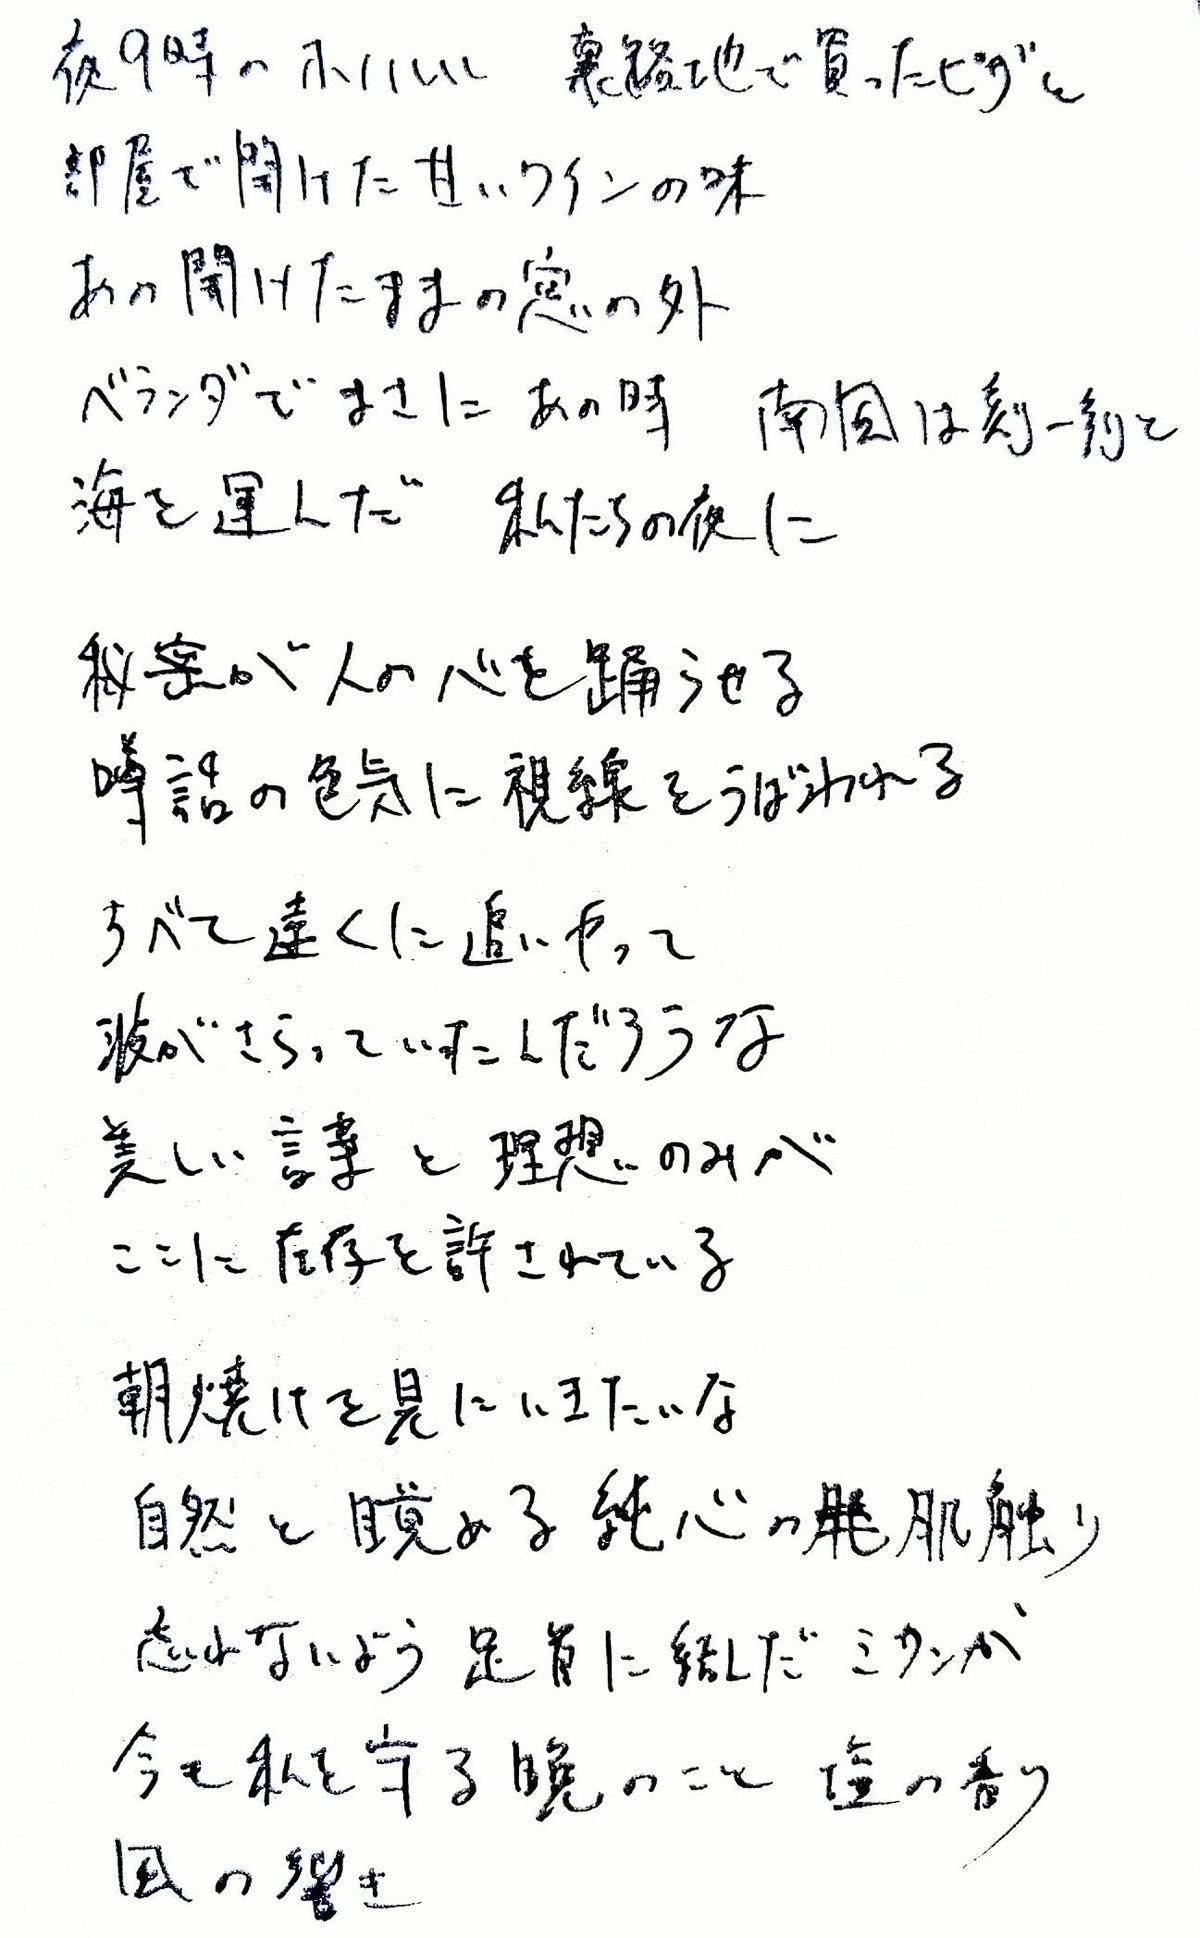 夜9時のホノルル　裏路地で買ったピザと
部屋で開けた甘いワインの味
あの開けたままの窓の外
ベランダでまさにあの時　南風は刻一刻と
海を運んだ　私たちの夜に
秘密が人の心を踊らせる
噂話の色気に視線をうばわれる
すべて遠くに追いやって
波がさらっていったんだろうな
美しい言葉と理想のみが
ここに存在を許されている
朝焼けを見にいきたいな
自然と目覚める純心の肌触り
忘れないよう足首に結んだミサンガ
今も私を守る晩のこと　塩の香り
風の響き